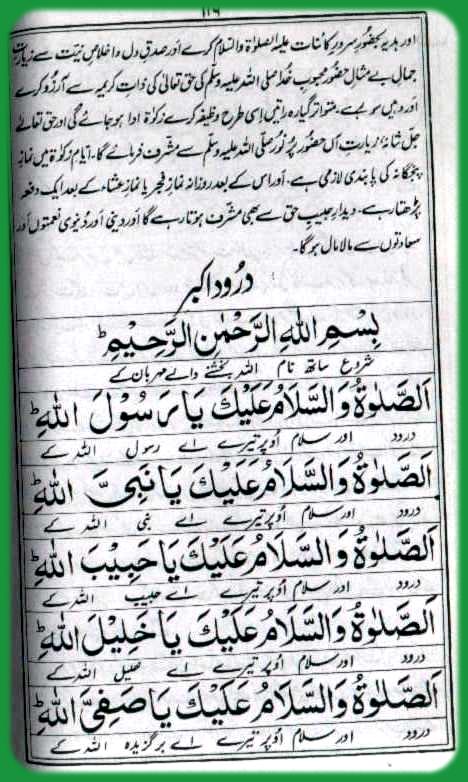 ۱۱۶
اور ہدیہ بحضور سرورِ کائنات علیہ الصلوٰۃ والسلام کرے اور صدقِ دل و اخلاصِ نیت سے زیارت
جمالِ بے مثال حضور محبوبِ خدا صلی اللہ علیہ وسلم کی حق تعالیٰ کی ذاتِ کریمہ سے آرزو کرے
اور وہیں سو رہے، متواتر گیارہ راتیں اسی طرح وظیفہ کرے زکوٰۃ ادا ہو جائے گی اور حق تعالیٰ
جل شانہٗ زیارت آں حضور پُر نور صلی اللہ علیہ وسلم سے مشرف فرمائے گا۔ ایام زکوٰۃ میں نماز
پنجگانہ کی پابندی لازمی ہے۔ اور اس کے بعد روزانہ نمازِ فجر یا نمازِ عشاء کے بعد ایک دفعہ
پڑھتا رہے۔ دیدارِ حبیبِ حق سے بھی مشرف ہوتا رہے گا اور دینی اور دنیوی نعمتوں اور
سعادتوں سے مالا مال ہوگا۔
درود اکبر
بِسْمِ اللهِ الرَّحْمٰنِ الرَّحِيْمِ ط
شروع ساتھ نام اللہ بخشنے والے مہربان کے
اَلصَّلٰوةُ وَالسَّلَامُ عَلَيْكَ يَا رَسُوْلَ اللهِ ط
درود اور سلام اُوپر تیرے اے رسول اللہ کے
اَلصَّلٰوةُ وَالسَّلَامُ عَلَيْكَ يَا نَبِیَّ اللهِ ط
درود اور سلام اُوپر تیرے اے نبی اللہ کے
اَلصَّلٰوةُ وَالسَّلَامُ عَلَيْكَ يَا حَبِيْبَ اللهِ ط
درود اور سلام اُوپر تیرے اے حبیب اللہ کے
اَلصَّلٰوةُ وَالسَّلَامُ عَلَيْكَ يَا خَلِيْلَ اللهِ ط
درود اور سلام اُوپر تیرے اے خلیل اللہ کے
اَلصَّلٰوةُ وَالسَّلَامُ عَلَيْكَ يَا صَفِیَّ اللهِ ط
درود اور سلام اُوپر تیرے اے برگزیدہ اللہ کے